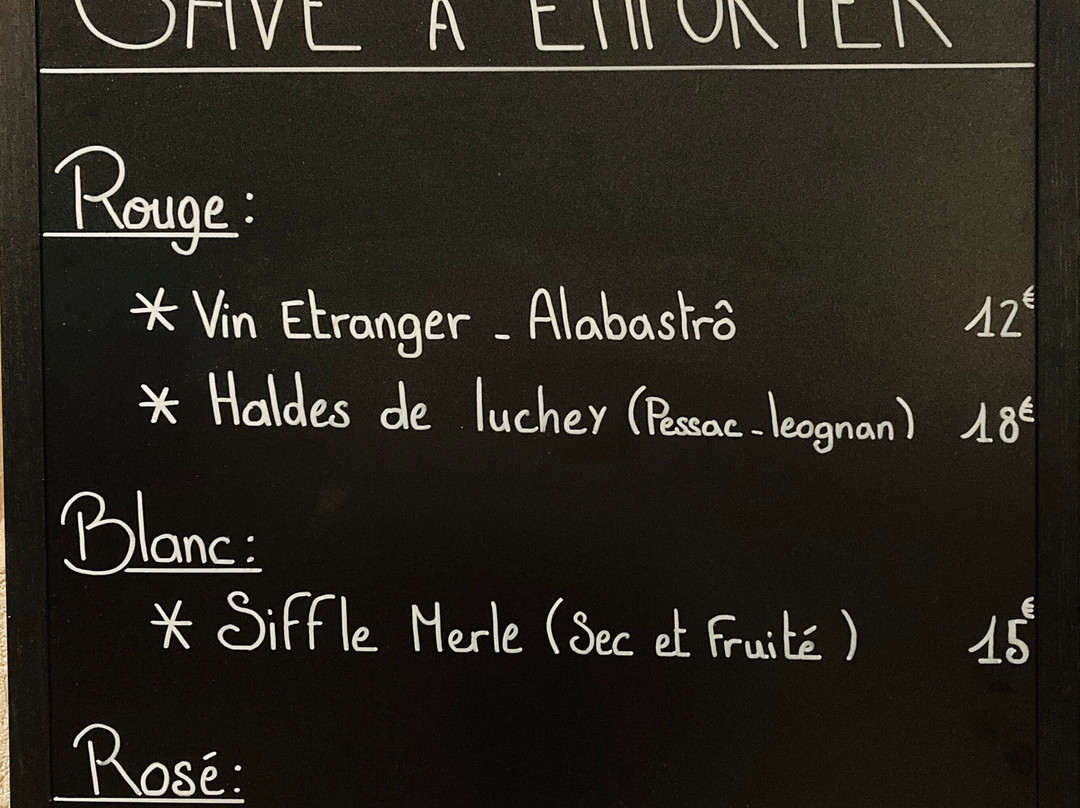 CAVE A EMPORTER
Rouge :
* Vin Etranger - Alabastrô 12€
* Haldes de luchey (Pessac-leognan) 18€
Blanc :
* Siffle Merle (Sec et Fruité) 15€
Rosé :